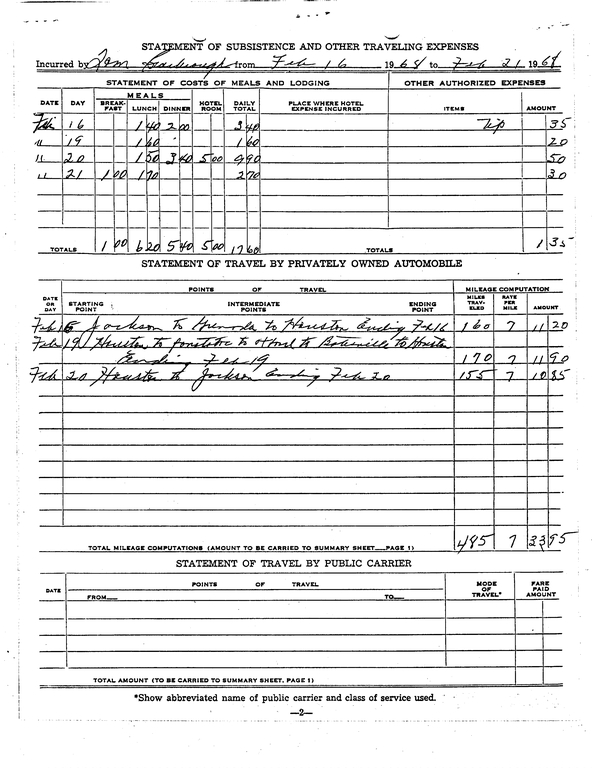 STATEMENT OF SUBSISTENCE AND OTHER TRAVELING EXPENSES
Incurred by Tom Scarbrough from Feb 16 1968 to Feb 21 1968
STATEMENT OF COSTS OF MEALS AND LODGING OTHER AUTHORIZED EXPENSES
MEALS
DATE DAY BREAK-FAST LUNCH DINNER HOTEL ROOM DAILY TOTAL PLACE WHERE HOTEL EXPENSE INCURRED ITEMS AMOUNT
Feb 16 1 40 2 00 3 40 Tip 35
" 19 1 60 1 60 20
" 20 1 50 3 40 5 00 9 90 50
" 21 1 00 1 70 2 70 30
TOTALS 1 00 6 20 5 40 5 00 17 60 TOTALS 1 35
STATEMENT OF TRAVEL BY PRIVATELY OWNED AUTOMOBILE
POINTS OF TRAVEL MILEAGE COMPUTATION
DATE OR DAY STARTING POINT INTERMEDIATE POINTS ENDING POINT MILES TRAV-ELED RATE PER MILE AMOUNT
Feb 16 Jackson to to Houston Ending Feb 16 160 7 11 20
Feb 19 Houston to to to to Houston
Ending Feb 19 170 7 11 90
Feb 20 Houston to Jackson Ending Feb 20 155 7 10 85
TOTAL MILEAGE COMPUTATIONS (AMOUNT TO BE CARRIED TO SUMMARY SHEET__PAGE 1) 485 7 33 95
STATEMENT OF TRAVEL BY PUBLIC CARRIER
DATE POINTS OF TRAVEL MODE OF TRAVEL* FARE PAID AMOUNT
FROM__ TO__
TOTAL AMOUNT (TO BE CARRIED TO SUMMARY SHEET. PAGE 1)
*Show abbreviated name of public carrier and class of service used.
—2—